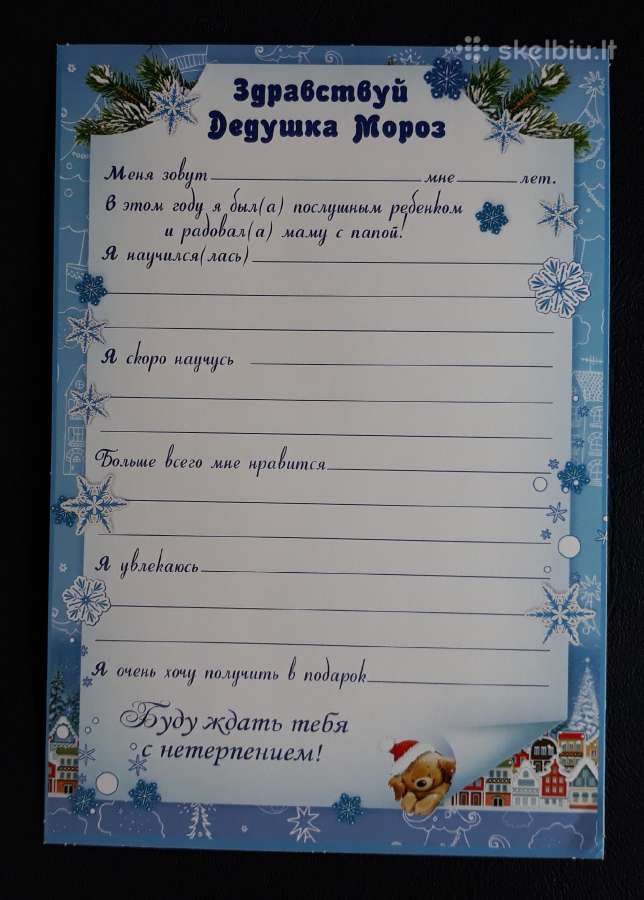 skelbiu.lt
Здравствуй
Дедушка Мороз
Меня зовут мне лет.
В этом году я был(а) послушным ребенком
и радовал(а) маму с папой!
Я научился(лась)
Я скоро научусь
Больше всего мне нравится
Я увлекаюсь
Я очень хочу получить в подарок
Буду ждать тебя
с нетерпением!